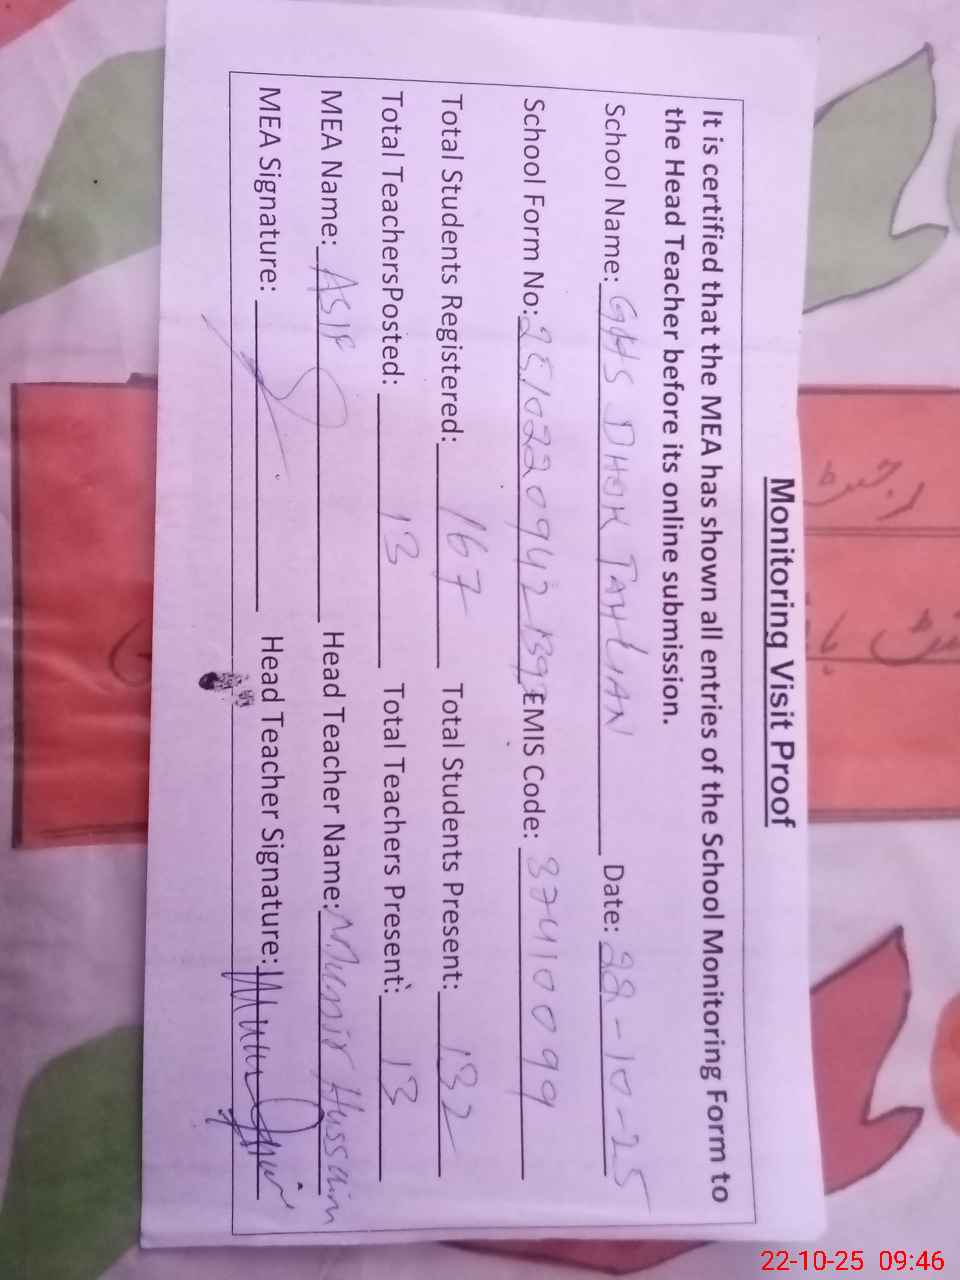 Monitoring Visit Proof
It is certified that the MEA has shown all entries of the School Monitoring Form to
the Head Teacher before its online submission.
School Name: GHS DHOK TAHLIAN Date: 22-10-25
School Form No: EMIS Code: 37410099
Total Students Registered: 167 Total Students Present: 132
Total TeachersPosted: 13 Total Teachers Present: 13
MEA Name: ASIF Head Teacher Name: Munir Hussain
MEA Signature: Head Teacher Signature:
22-10-25 09:46